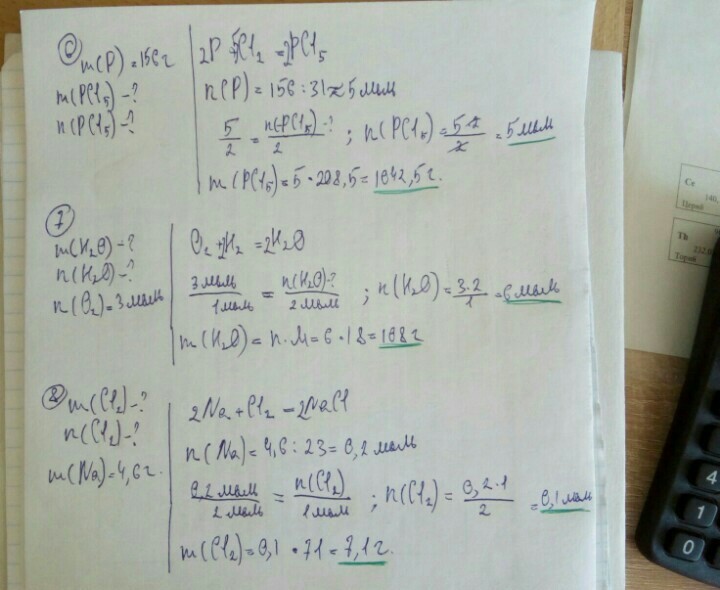 6
m(P) = 156г
m(PCl₅) - ?
n(PCl₅) - ?
2P + 5Cl₂ = 2PCl₅
n(P) = 156 : 31 ≈ 5 моль
5/2 = n(PCl₅) - ?/2 ; n(PCl₅) = 5·2/2 = 5 моль
m(PCl₅) = 5 · 208,5 = 1042,5г.
7
m(H₂O) - ?
n(H₂O) - ?
n(O₂) = 3 моль
O₂ + 2H₂ = 2H₂O
3 моль/1 моль = n(H₂O) - ?/2 моль ; n(H₂O) = 3·2/1 = 6 моль
m(H₂O) = n · M = 6 · 18 = 108г
8
m(Cl₂) - ?
n(Cl₂) - ?
m(Na) = 4,6г.
2Na + Cl₂ = 2NaCl
n(Na) = 4,6 : 23 = 0,2 моль
0,2 моль/2 моль = n(Cl₂)/1 моль ; n(Cl₂) = 0,2·1/2 = 0,1 моль
m(Cl₂) = 0,1 · 71 = 7,1г.
Ce
140,
Церий
Th
232,0
Торий
4
1
0